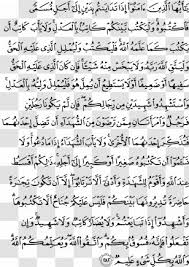 يَٰٓأَيُّهَا ٱلَّذِينَ ءَامَنُوٓا۟ إِذَا تَدَايَنتُم بِدَيْنٍ إِلَىٰٓ أَجَلٍ مُّسَمًّى
فَٱكْتُبُوهُ ۚ وَلْيَكْتُب بَّيْنَكُمْ كَاتِبٌۢ بِٱلْعَدْلِ ۚ وَلَا يَأْبَ كَاتِبٌ أَن
يَكْتُبَ كَمَا عَلَّمَهُ ٱللَّهُ ۚ فَلْيَكْتُبْ وَلْيُمْلِلِ ٱلَّذِى عَلَيْهِ ٱلْحَقُّ
وَلْيَتَّقِ ٱللَّهَ رَبَّهُۥ وَلَا يَبْخَسْ مِنْهُ شَيْـًٔا ۚ فَإِن كَانَ ٱلَّذِى عَلَيْهِ ٱلْحَقُّ
سَفِيهًا أَوْ ضَعِيفًا أَوْ لَا يَسْتَطِيعُ أَن يُمِلَّ هُوَ فَلْيُمْلِلْ وَلِيُّهُۥ بِٱلْعَدْلِ ۚ
وَٱسْتَشْهِدُوا۟ شَهِيدَيْنِ مِن رِّجَالِكُمْ ۖ فَإِن لَّمْ يَكُونَا رَجُلَيْنِ
فَرَجُلٌ وَٱمْرَأَتَانِ مِمَّن تَرْضَوْنَ مِنَ ٱلشُّهَدَآءِ أَن تَضِلَّ
إِحْدَىٰهُمَا فَتُذَكِّرَ إِحْدَىٰهُمَا ٱلْأُخْرَىٰ ۚ وَلَا يَأْبَ ٱلشُّهَدَآءُ إِذَا مَا دُعُوا۟ ۚ
وَلَا تَسْـَٔمُوٓا۟ أَن تَكْتُبُوهُ صَغِيرًا أَوْ كَبِيرًا إِلَىٰٓ أَجَلِهِۦ ۚ ذَٰلِكُمْ أَقْسَطُ
عِندَ ٱللَّهِ وَأَقْوَمُ لِلشَّهَٰدَةِ وَأَدْنَىٰٓ أَلَّا تَرْتَابُوٓا۟ ۖ إِلَّآ أَن تَكُونَ تِجَٰرَةً
حَاضِرَةً تُدِيرُونَهَا بَيْنَكُمْ فَلَيْسَ عَلَيْكُمْ جُنَاحٌ أَلَّا تَكْتُبُوهَا ۗ
وَأَشْهِدُوٓا۟ إِذَا تَبَايَعْتُمْ ۚ وَلَا يُضَآرَّ كَاتِبٌ وَلَا شَهِيدٌ ۚ وَإِن تَفْعَلُوا۟
فَإِنَّهُۥ فُسُوقٌۢ بِكُمْ ۗ وَٱتَّقُوا۟ ٱللَّهَ ۖ وَيُعَلِّمُكُمُ ٱللَّهُ ۗ
وَٱللَّهُ بِكُلِّ شَىْءٍ عَلِيمٌ ٢٨٢